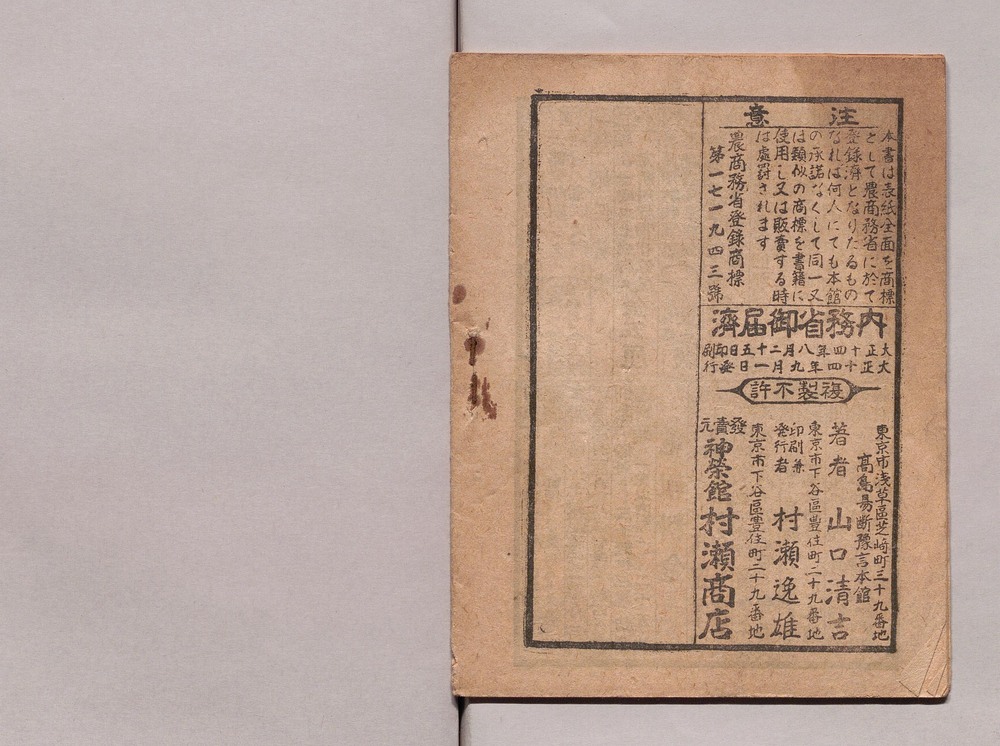 注意
本書は表紙全面を商標
として農商務省に於て
登録濟となりたるもの
なれば何人にても本館
の承諾なくして同一又
は類似の商標を書籍に
使用し又は販賣する時
は處罰されます
農商務省登録商標
第一七一九四三號
内務省御届濟
大正十四年八月二十五日印刷
大正十四年九月一日發行
複製不許
東京市浅草區芝崎町三十九番地
高島易断豫言本館
著者 山口清吉
東京市下谷區豊住町二十九番地
印刷兼
発行者 村瀬逸雄
東京市下谷區豊住町二十九番地
發賣元
神榮館 村瀬商店